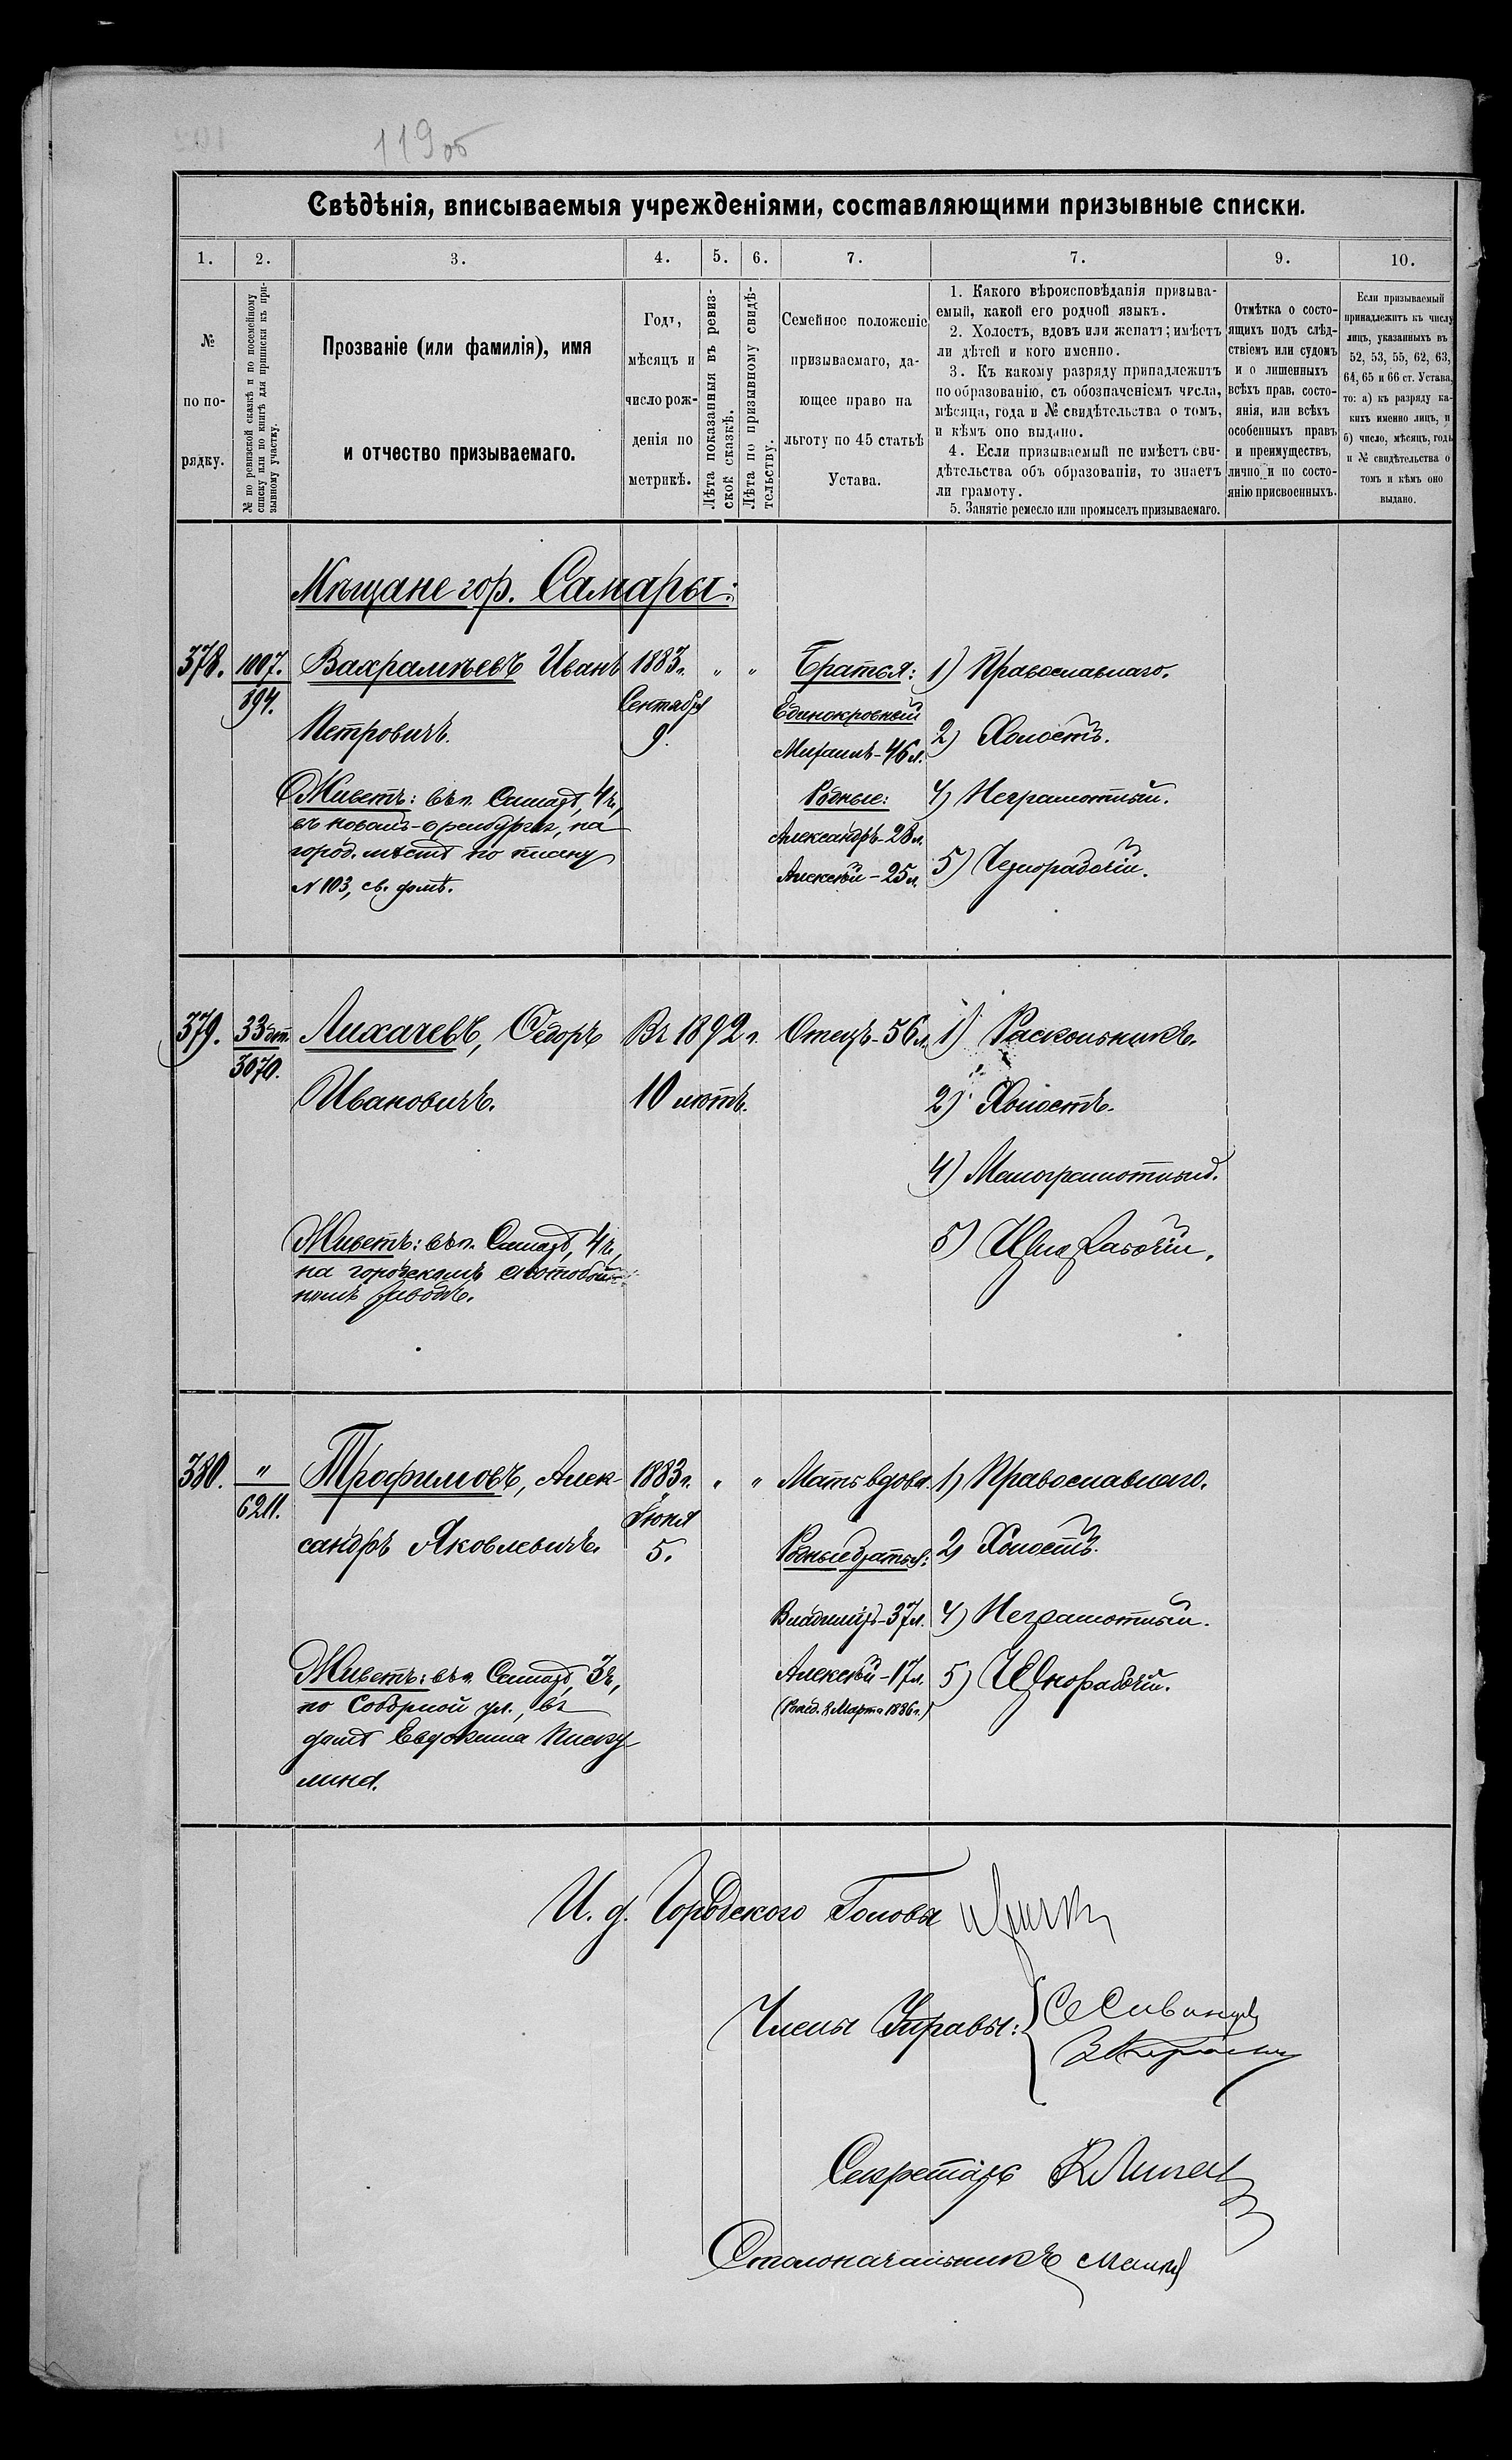 119 об
Свѣдѣнія, вписываемыя учрежденіями, составляющими призывные списки.
1. 2. 3. 4. 5. 6. 7. 7. 9. 10.
№
по по-
рядку.
№ по ревизской сказкѣ и по посемейному
списку или по книгѣ для приписки къ при-
зывному участку.
Прозваніе (или фамилія), имя
и отчество призываемаго.
Годъ,
мѣсяцъ и
число рож-
денія по
метрикѣ.
Лѣта показанныя въ ревиз-
ской сказкѣ.
Лѣта по призывному свидѣ-
тельству.
Семейное положеніе
призываемаго, да-
ющее право на
льготу по 45 статьѣ
Устава.
1. Какого вѣроисповѣданія призыва-
емый, какой его родной языкъ.
2. Холостъ, вдовъ или женатъ; имѣетъ
ли дѣтей и кого именно.
3. Къ какому разряду принадлежитъ
по образованію, съ обозначеніемъ числа,
мѣсяца, года и № свидѣтельства о томъ,
и кѣмъ оно выдано.
4. Если призываемый не имѣетъ сви-
дѣтельства объ образованіи, то знаетъ
ли грамоту.
5. Занятіе ремесло или промыселъ призываемаго.
Отмѣтка о состо-
ящихъ подъ слѣд-
ствіемъ или судомъ
и о лишенныхъ
всѣхъ прав. состо-
янія, или всѣхъ
особенныхъ правъ
и преимуществъ,
лично и по состо-
янію присвоенныхъ.
Если призываемый
принадлежитъ къ числу
лицъ, указанныхъ въ
52, 53, 55, 62, 63,
64, 65 и 66 ст. Устава,
то: а) къ разряду ка-
кихъ именно лицъ, и
б) число, мѣсяцъ, годъ
и № свидѣтельства о
томъ и кѣмъ оно
выдано.
Мѣщане гор. Самары:
378. 1007. Вахрамѣевъ Иванъ 1883 г. " " Братья: 1) Православнаго.
894. Сентября Единокровный
Петровичъ. 9. Михаилъ - 46 л. 2) Холостъ.
Живетъ: въ г. Самарѣ, 4 ч., Родные: 4) Неграмотный.
въ новомъ-Оренбургѣ, на Александръ - 28 л.
город. мѣстѣ по плану Алексѣй - 25 л. 5) Чернорабочій.
N 103, св. домъ.
379. 33 доп. Лихачевъ, Ѳедоръ Въ 1892 г. Отецъ - 56 л. 1) Раскольникъ.
3070.
Ивановичъ. 10 лѣтъ. 2) Холостъ.
4) Малограмотный.
Живетъ: въ г. Самарѣ, 4 ч., 5)
на городскомъ скотобой-
номъ заводѣ.
380. " Трофимовъ, Алек- 1883 г. " " Мать вдова. 1) Православнаго.
6211. Іюня
сандръ Яковлевичъ. 5. Родные братья: 2) Холостъ.
Владиміръ - 37 л. 4) Неграмотный.
Живетъ: въ г. Самарѣ, 3 ч., Алексѣй - 17 л. 5) Чернорабочій.
по Соборной ул., въ (Рожд. 8 Марта 1886 г.)
домѣ Евдокима Писку-
лина.
И. д. Городского Головы
Члены Управы:
Секретарь
Столоначальникъ